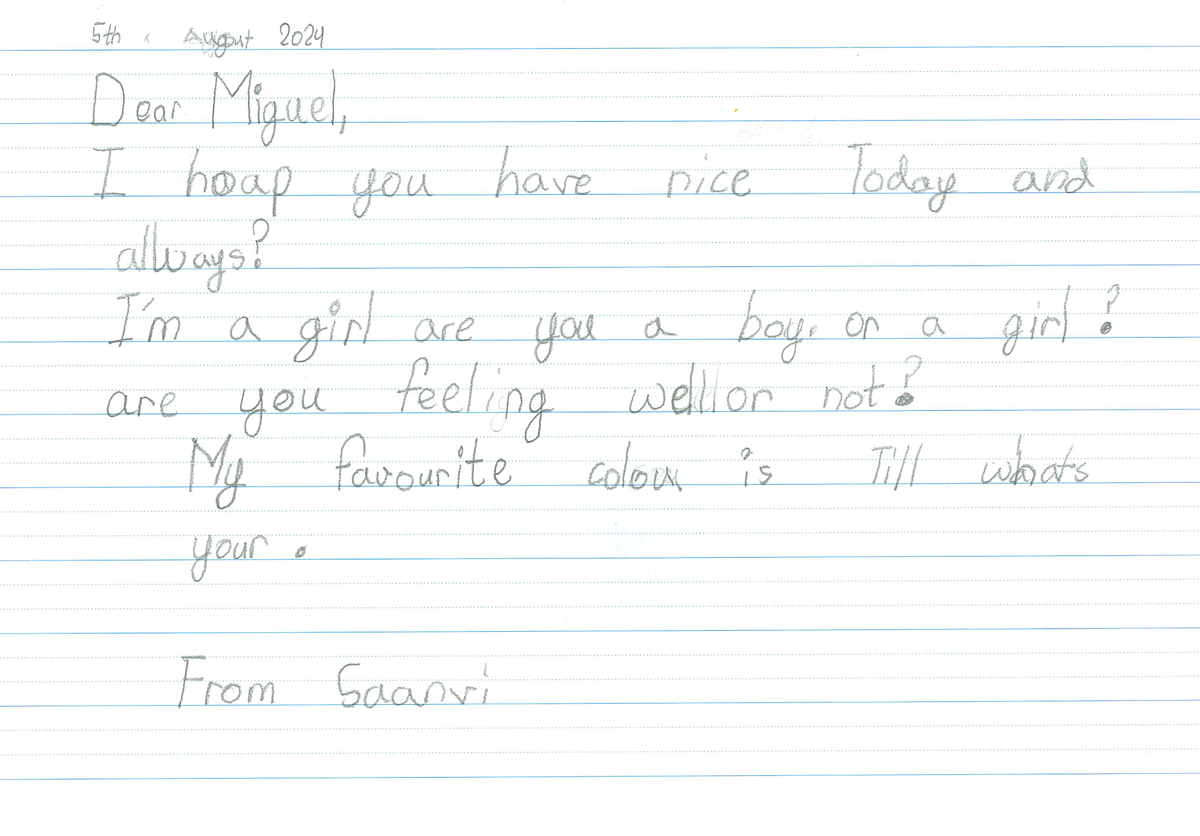 5th August 2024
Dear Miguel,
I hoap you have nice Today and
allways?
I'm a girl are you a boy. or a girl?
are you feeling well or not?
My favourite colour is Till whats
your.
From Saanvi